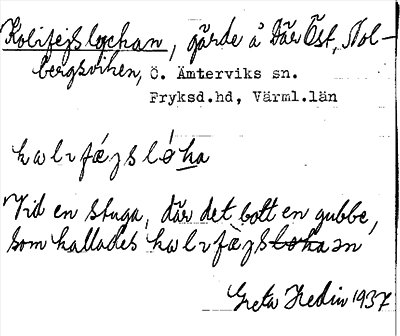 Kolifejslyckan, gärde å Där Öst, Nol-
bergsviken, Ö. Ämterviks sn.
Fryksd.hd, Värml.län
kalıfǽjsló̱ka
Vid en stuga, där det bott en gubbe,
som kallades kalıfæ̀jsən
Greta Hedin 1937